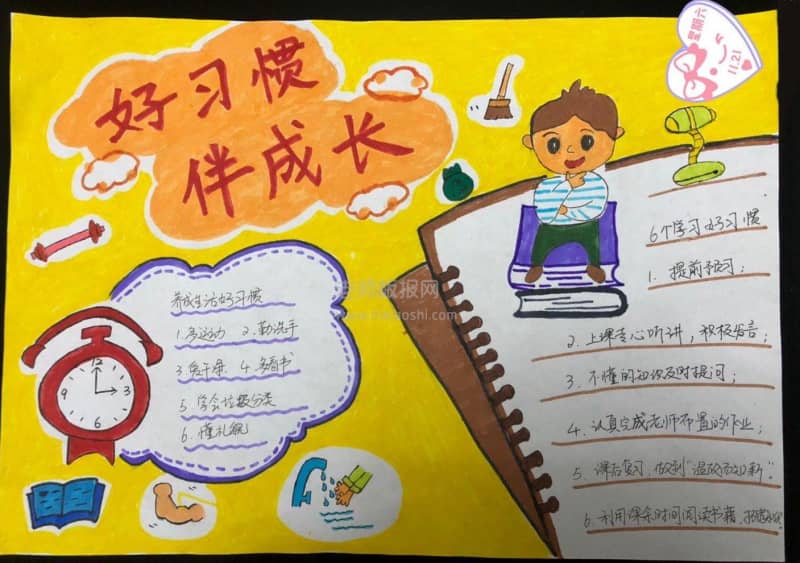 好习惯
伴成长
星期六
11.21
养成生活好习惯
1.多运动 2.勤洗手
3.爱干净. 4.多看书
5.学会垃圾分类
6.懂礼貌
6个学习好习惯
1. 提前预习;
2. 上课专心听讲，积极发言;
3. 不懂的知识及时提问;
4. 认真完成老师布置的作业;
5. 课后复习 做到"温故而知新".
6. 利用课余时间阅读书籍,
12
3
6
9